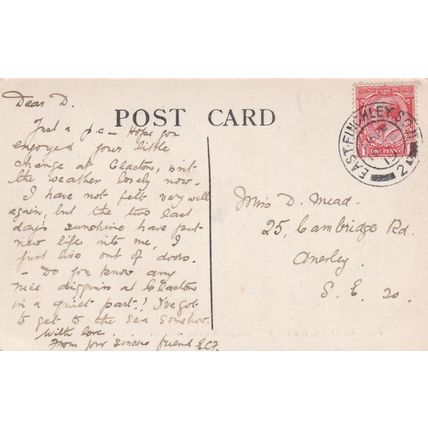 Dear D.
POST CARD
Just a p.c – Hope you
enjoyed your little
change at Clacton, isn't
the weather lovely now.
I have not felt very well
again, but the two last
days sunshine have put
new life into me, I
just live out of doors.
– Do you know any
nice diggins at Clacton
in a quiet part! I've got
to get to the sea somehow.
With love
From your sincere friend
EAST FINCHLEY
ONE PENNY
Miss D. Mead.
25, Cambridge Rd.
Anerley
S. E. 20.